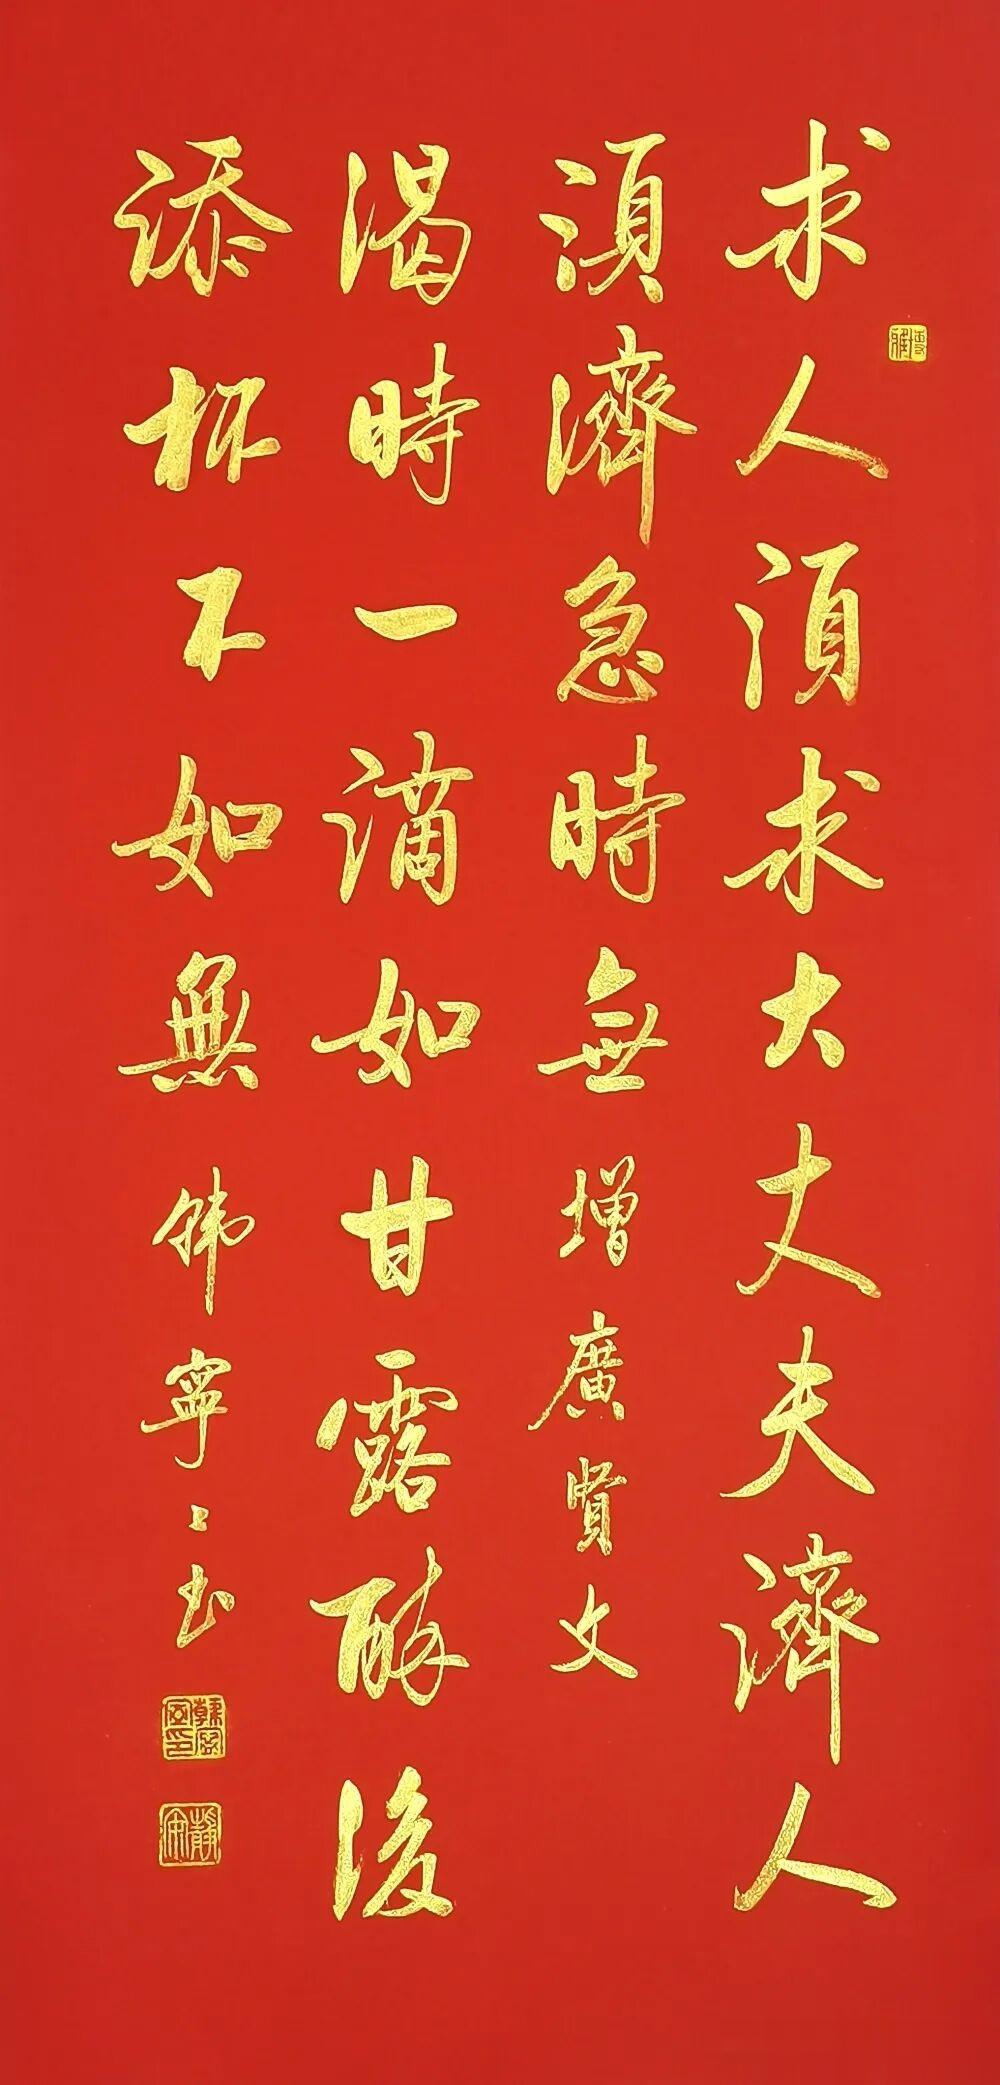 求人湏求大丈夫濟人
湏濟急時無 增廣賢文
渴時一滴如甘露醉後
添杯不如無 韩寧〻书